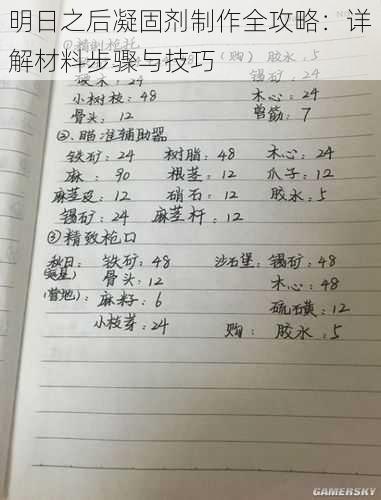 明日之后凝固剂制作全攻略：详
解材料步骤与技巧
①精制枪托
(购) 胶水：5
硬木：24 锡矿：24
小树枝：48 木心：24
骨头：12 兽筋：7
②.瞄准辅助器
铁矿：24 树脂：48 木心：24
麻：90 根茎：12 爪子：12
麻茎皮：12 硝石：12 胶水：5
锡矿：24 麻茎杆：12
③精致枪口
秋日：铁矿：48 沙石堡：锡矿：48
骨头：12 木心：48
(营地)：麻籽：6 硫磺：12
小枝芽：24 购：胶水：5
GAMERSKY